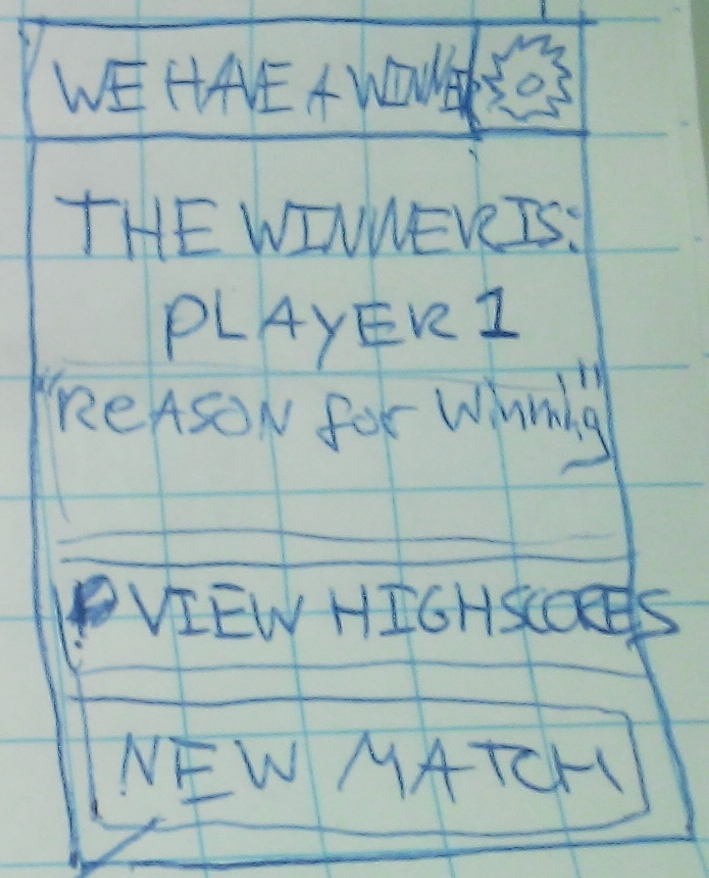 WE HAVE A WINNER
THE WINNER IS:
PLAYER 1
"REASON for Winning"
VIEW HIGHSCORES
NEW MATCH